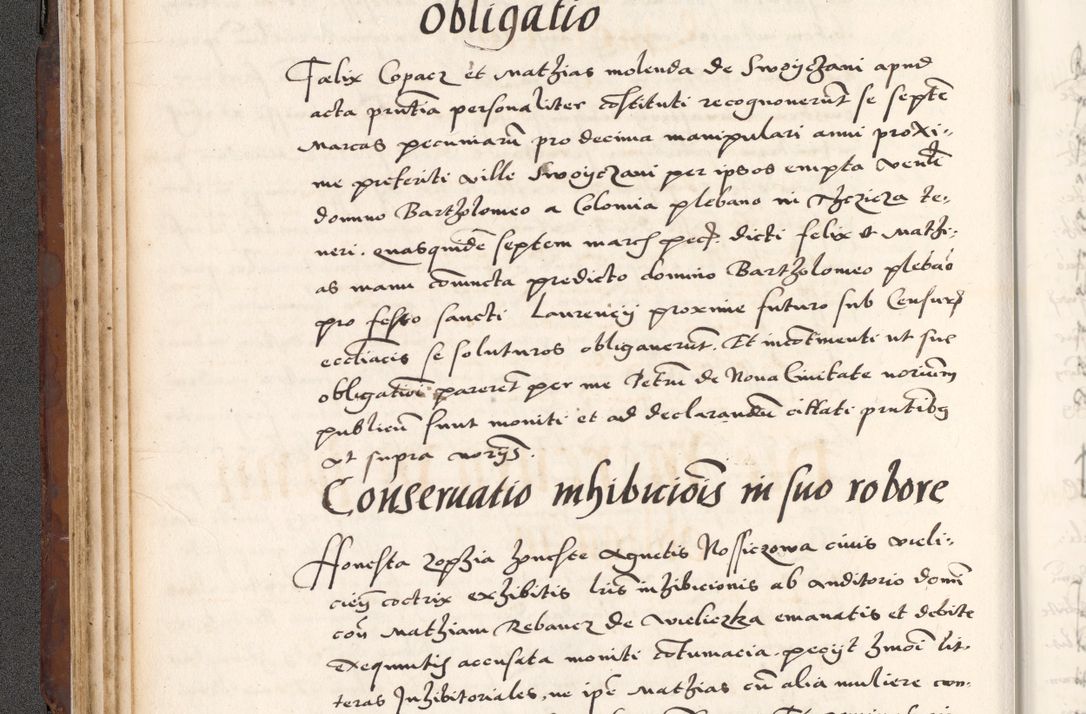 Obligatio
Fælix Copacz et Mathias molenda de Swoyczani apud
acta prntia personaliter cstituti recognoverut se septe
marcas pecuniaru pro decima manipulari anni proxi-
me preteriti ville Swoyczani per ipsos empta
domino Bartholomeo a Colonia plebano in te-
neri. quasquide septem march pec. dicti felix et Mathi-
as manu coniuncta predicto domino Bartholomeo plebao
pro festo sancti Laurencij proxime futuro sub Censuris
eccliacis se soluturos obligaverut. Et incotinenti ut sue
obligationi pareret per me Petru de Nova Civitate norium
publicu sunt moniti et ad declarandu cittati prntibus
ut supra norijs.
Conservatio inhibiciois in suo robore
Honesta zophia honeste Agnetis Nossiczowa civis vieli-
cien coctrix exhibitis lris inhibicionis ab Auditorio domi
con Mathiam Rebancz de wieliczka emanatis et debite
exequutis accusata moniti cotumacia. pecijt lit-
teras Inhibitoriales, ne ipe Mathias cu alia muliere con-